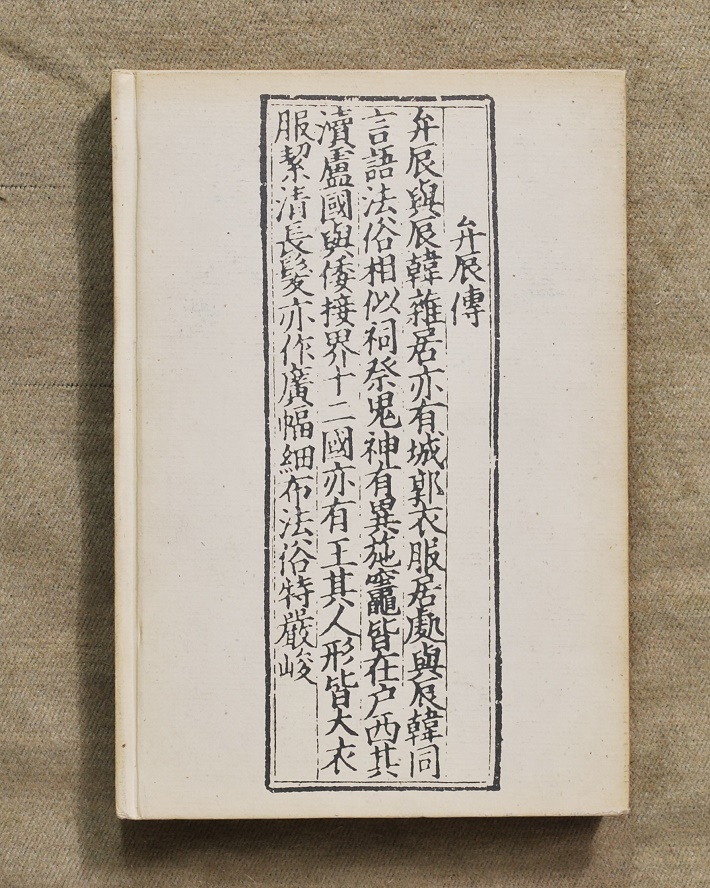 弁辰傳
弁辰與辰韓雜居亦有城郭衣服居處與辰韓同
言語法俗相似祠祭鬼神有異施竈皆在户西其
瀆盧國與倭接界十二國亦有王其人形皆大衣
服絜清長髮亦作廣幅細布法俗特嚴峻